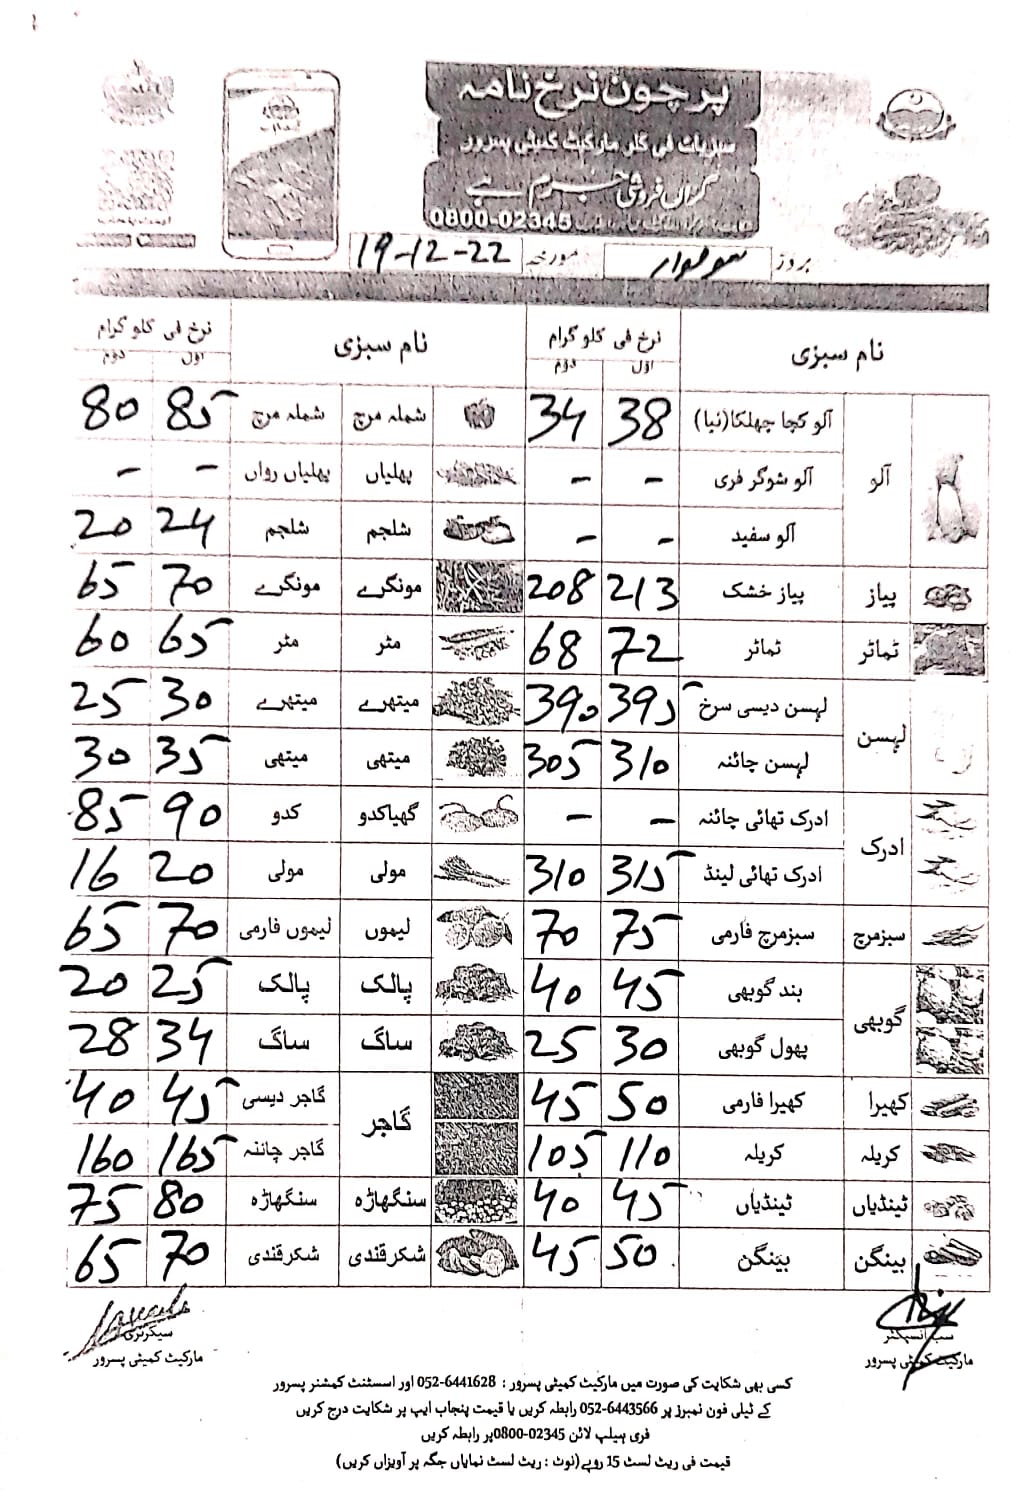 پرچون نرخ نامہ
سبزیات فی کلو مارکیٹ کمیٹی پسرور
گراں فروشی جرم ہے
0800-02345
بروز سوموار مورخہ 19-12-22
نام سبزی نرخ فی کلو گرام اوّل دوّم نام سبزی نرخ فی کلو گرام اوّل دوّم
آلو آلو کچا چھلکا(نیا) 38 34 شملہ مرچ شملہ مرچ 85 80
آلو شوگر فری - - پھلیاں پھلیاں رواں - -
آلو سفید - - شلجم شلجم 24 20
پیاز پیاز خشک 213 208 مونگرے مونگرے 70 65
ٹماٹر ٹماٹر 72 68 مٹر مٹر 65 60
لہسن لہسن دیسی سرخ 395 390 میتھرے میتھرے 30 25
لہسن چائنہ 310 305 میتھی میتھی 35 30
ادرک ادرک تھائی چائنہ - - گھیاکدو کدو 90 85
ادرک تھائی لینڈ 315 310 مولی مولی 20 16
سبزمرچ سبزمرچ فارمی 75 70 لیموں لیموں فارمی 70 65
گوبھی بند گوبھی 45 40 پالک پالک 25 20
پھول گوبھی 30 25 ساگ ساگ 34 28
کھیرا کھیرا فارمی 50 45 گاجر گاجر دیسی 45 40
کریلہ کریلہ 110 105 گاجر چائنہ 165 160
ٹینڈیاں ٹینڈیاں 45 40 سنگھاڑہ سنگھاڑہ 80 75
بینگن بینگن 50 45 شکرقندی شکرقندی 70 65
سب انسپکٹر سیکرٹری
مارکیٹ کمیٹی پسرور مارکیٹ کمیٹی پسرور
کسی بھی شکایت کی صورت میں مارکیٹ کمیٹی پسرور : 052-6441628 اور اسسٹنٹ کمشنر پسرور
کے ٹیلی فون نمبرز پر 052-6443566 رابطہ کریں یا قیمت پنجاب ایپ پر شکایت درج کریں
فری ہیلپ لائن 0800-02345پر رابطہ کریں
قیمت فی ریٹ لسٹ 15 روپے(نوٹ : ریٹ لسٹ نمایاں جگہ پر آویزاں کریں)